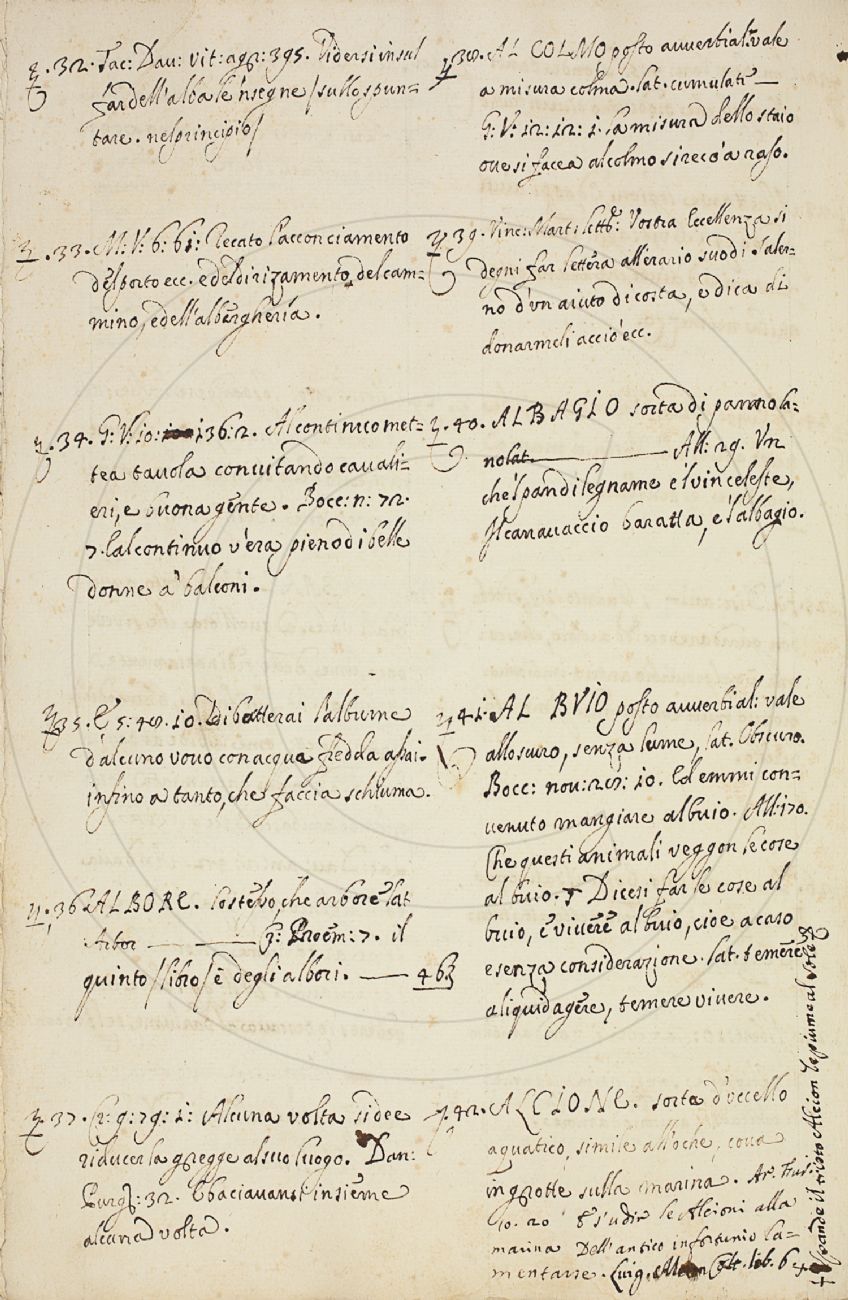 .32. Tac: Dav: vit: agr: 395. Vidersi in sul
far dell'alba le 'nsegne / sullo spun=
tare. nel principio /
.33. M: V: 6: 61: Recato l'acconciamento
del porto ecc. e del dirizamento del cam=
mino, e dell'alberghería.
.34. G: V: 10: 136: 2. Al continuo met=
tea tavola convitando cavali=
eri, e buona gente. Bocc: n: 72.
7. E al continuo v'era pieno di belle
donne a' balconi.
35. 5: 48. 10. Dibatterai l'albume
d'alcuno vovo con acqua fredda assai.
infino a tanto, che faccia schiuma.
.36. ALBORE. Lo stesso, che arbore lat
Arbor ——— Proem: 7. il
quinto / libro / è degli albori. — 463
.37. Cr: 9: 79: 1: Alcuna volta si dee
riducer la gregge al suo luogo. Dan:
Purg: 32. E baciavansi insieme
alcuna volta.
38. AL COLMO, posto avverbial: vale
a misura colma. lat. cumulatè —
G: V: 12: 12: 1. La misura dello staio
ove si facea al colmo si recò a raso.
39. Vinc: Mart: lett: Vostra Eccellenza si
degni far lettera all'erario suo di Saler=
no d'vn aiuto di costa, e dica di
donarmeli acciò ecc.
.40. ALBAGIO sorta di panno la=
no lat. ——— All: 29. Vn
che 'l pan di legname e 'l vin celeste,
Il canavaccio baratta, e l'albagio.
41. AL BVIO posto avverbial: vale
allo scuro, senza lume, lat. Obscuro.
Bocc: nov: 28: 10. Ed emmi con=
venuto mangiare al buio. All: 170.
Che questi animali veggon le cose
al buio. Dicesi far le cose al
buio, e vivere al buio, cioe a caso
e senza considerazione. lat. temerè
aliquid agere, temere vivere.
.42. ALCIONE. sorta d'vccello
aquatico, simile all'oche, cova
in grotte sulla marina. Ar. Fur:
10. 20 E s'udir le Alcioni alla
marina Dell'antico infortunio la=
mentarse. Luig. Alam Colt. lib. 6
+ Spande il tristo Alcion le piume al sole